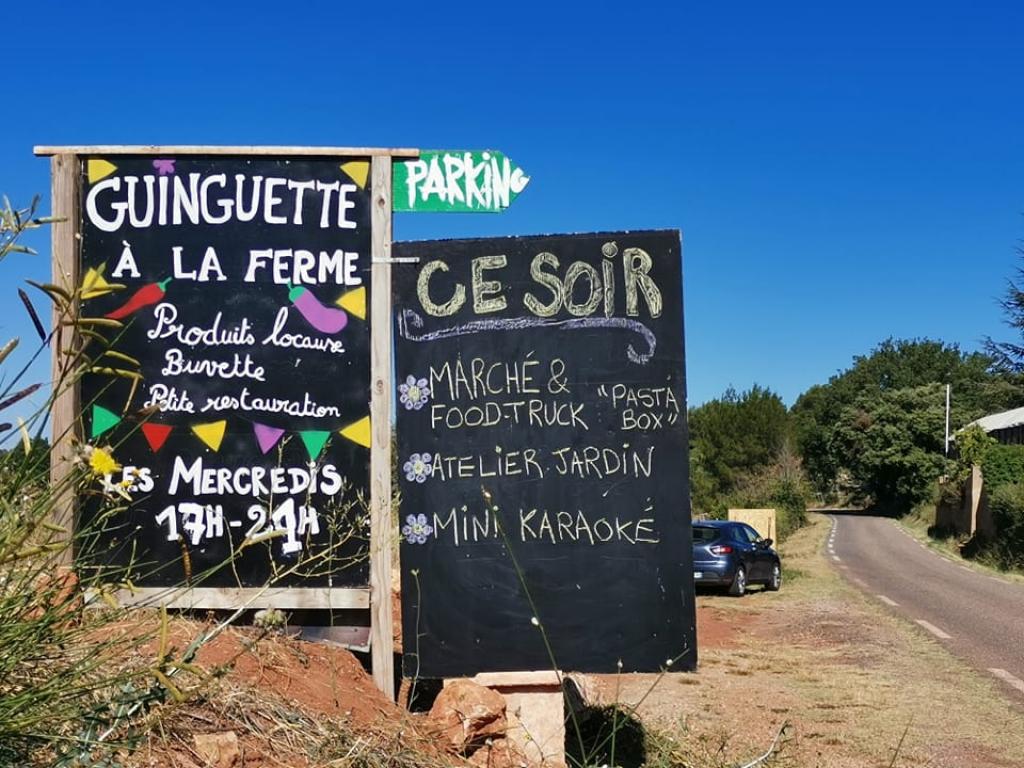 GUINGUETTE
À LA FERME
Produits locaux
Buvette
Petite restauration
LES MERCREDIS
17H-21H
PARKING
CE SOIR
MARCHÉ &
FOOD-TRUCK "PASTA
BOX"
ATELIER JARDIN
MINI KARAOKÉ